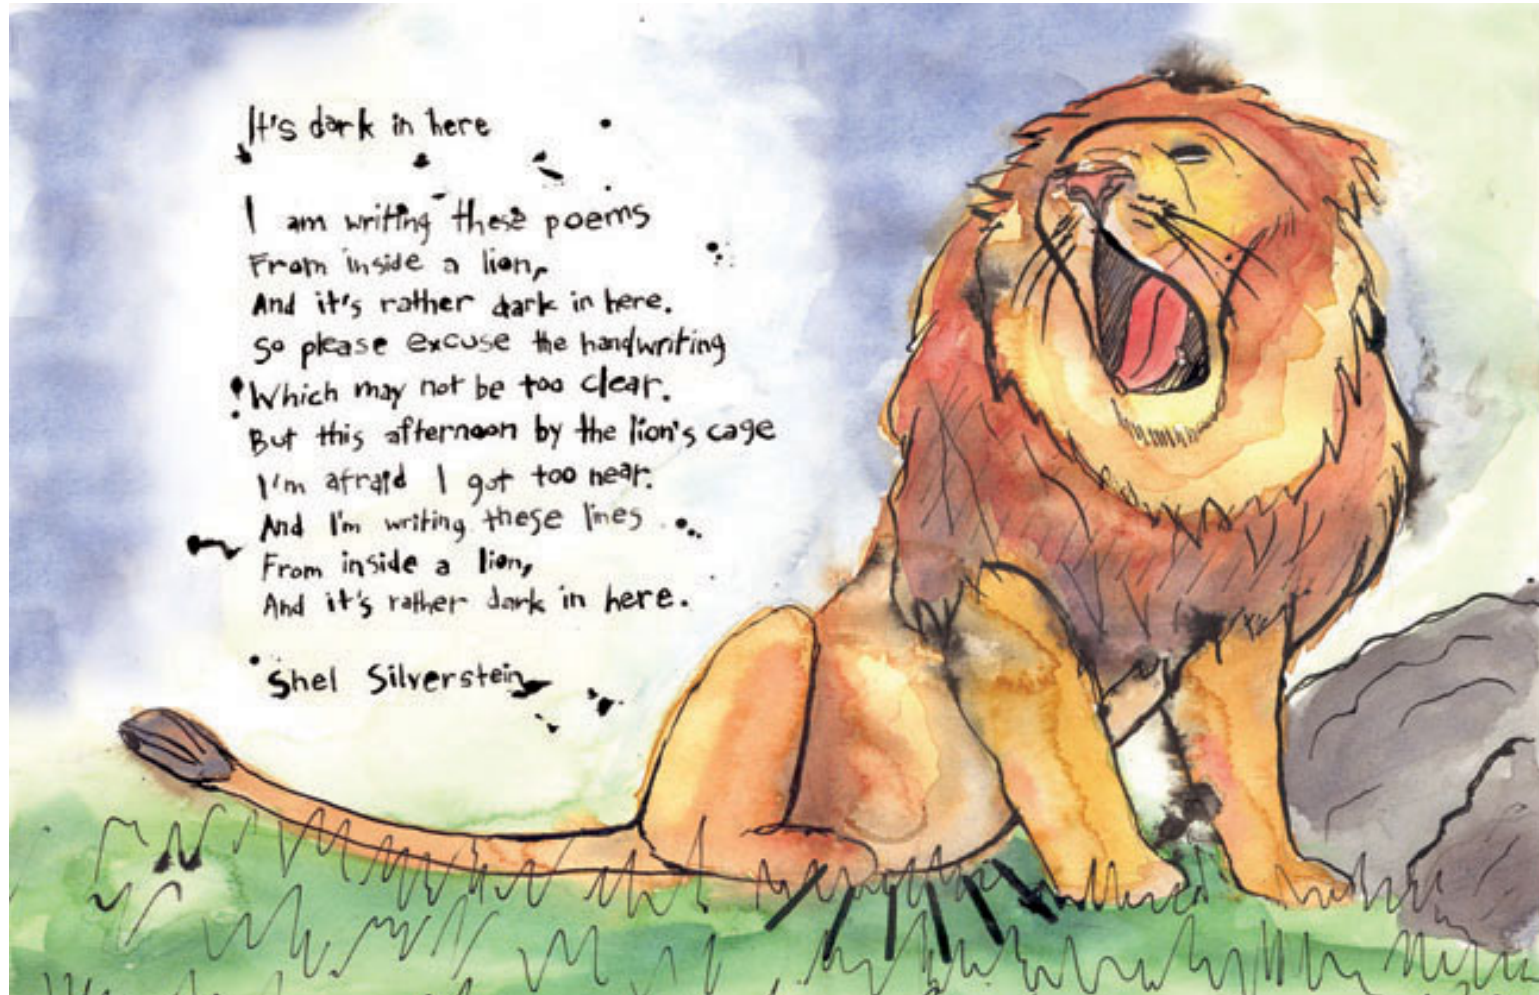 It's dark in here
I am writing these poems
From inside a lion,
And it's rather dark in here.
So please excuse the handwriting
Which may not be too clear.
But this afternoon by the lion's cage
I'm afraid I got too near.
And I'm writing these lines
From inside a lion,
And it's rather dark in here.
Shel Silverstein